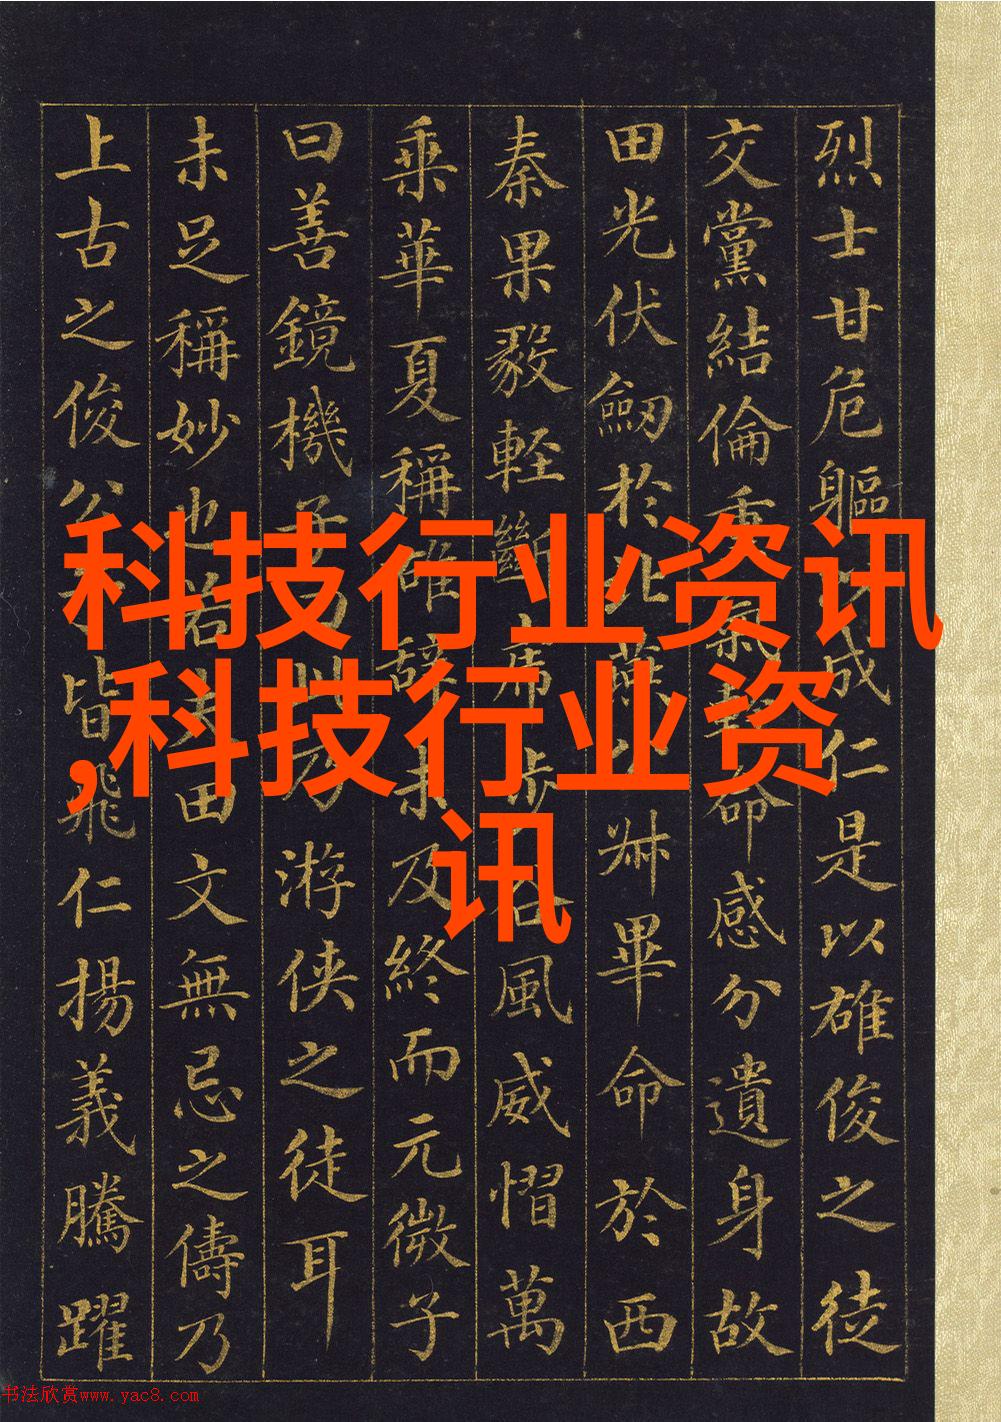 烈士甘危軀成仁是以雄俊之徒
交黨結倫重氣命感分遺身故
田光伏劒於北燕叔畢命於西
秦果毅輕斷虎步谷風威慴萬
乘華夏稱雄辭未及終而元微子
曰善鏡機子曰乃游俠之徒耳
未足稱妙也若夫田文無忌之儔乃
上古之俊公皆飛仁揚義騰躍
科技行业资讯
,科技行业资
讯
书法欣赏www.yac8.com